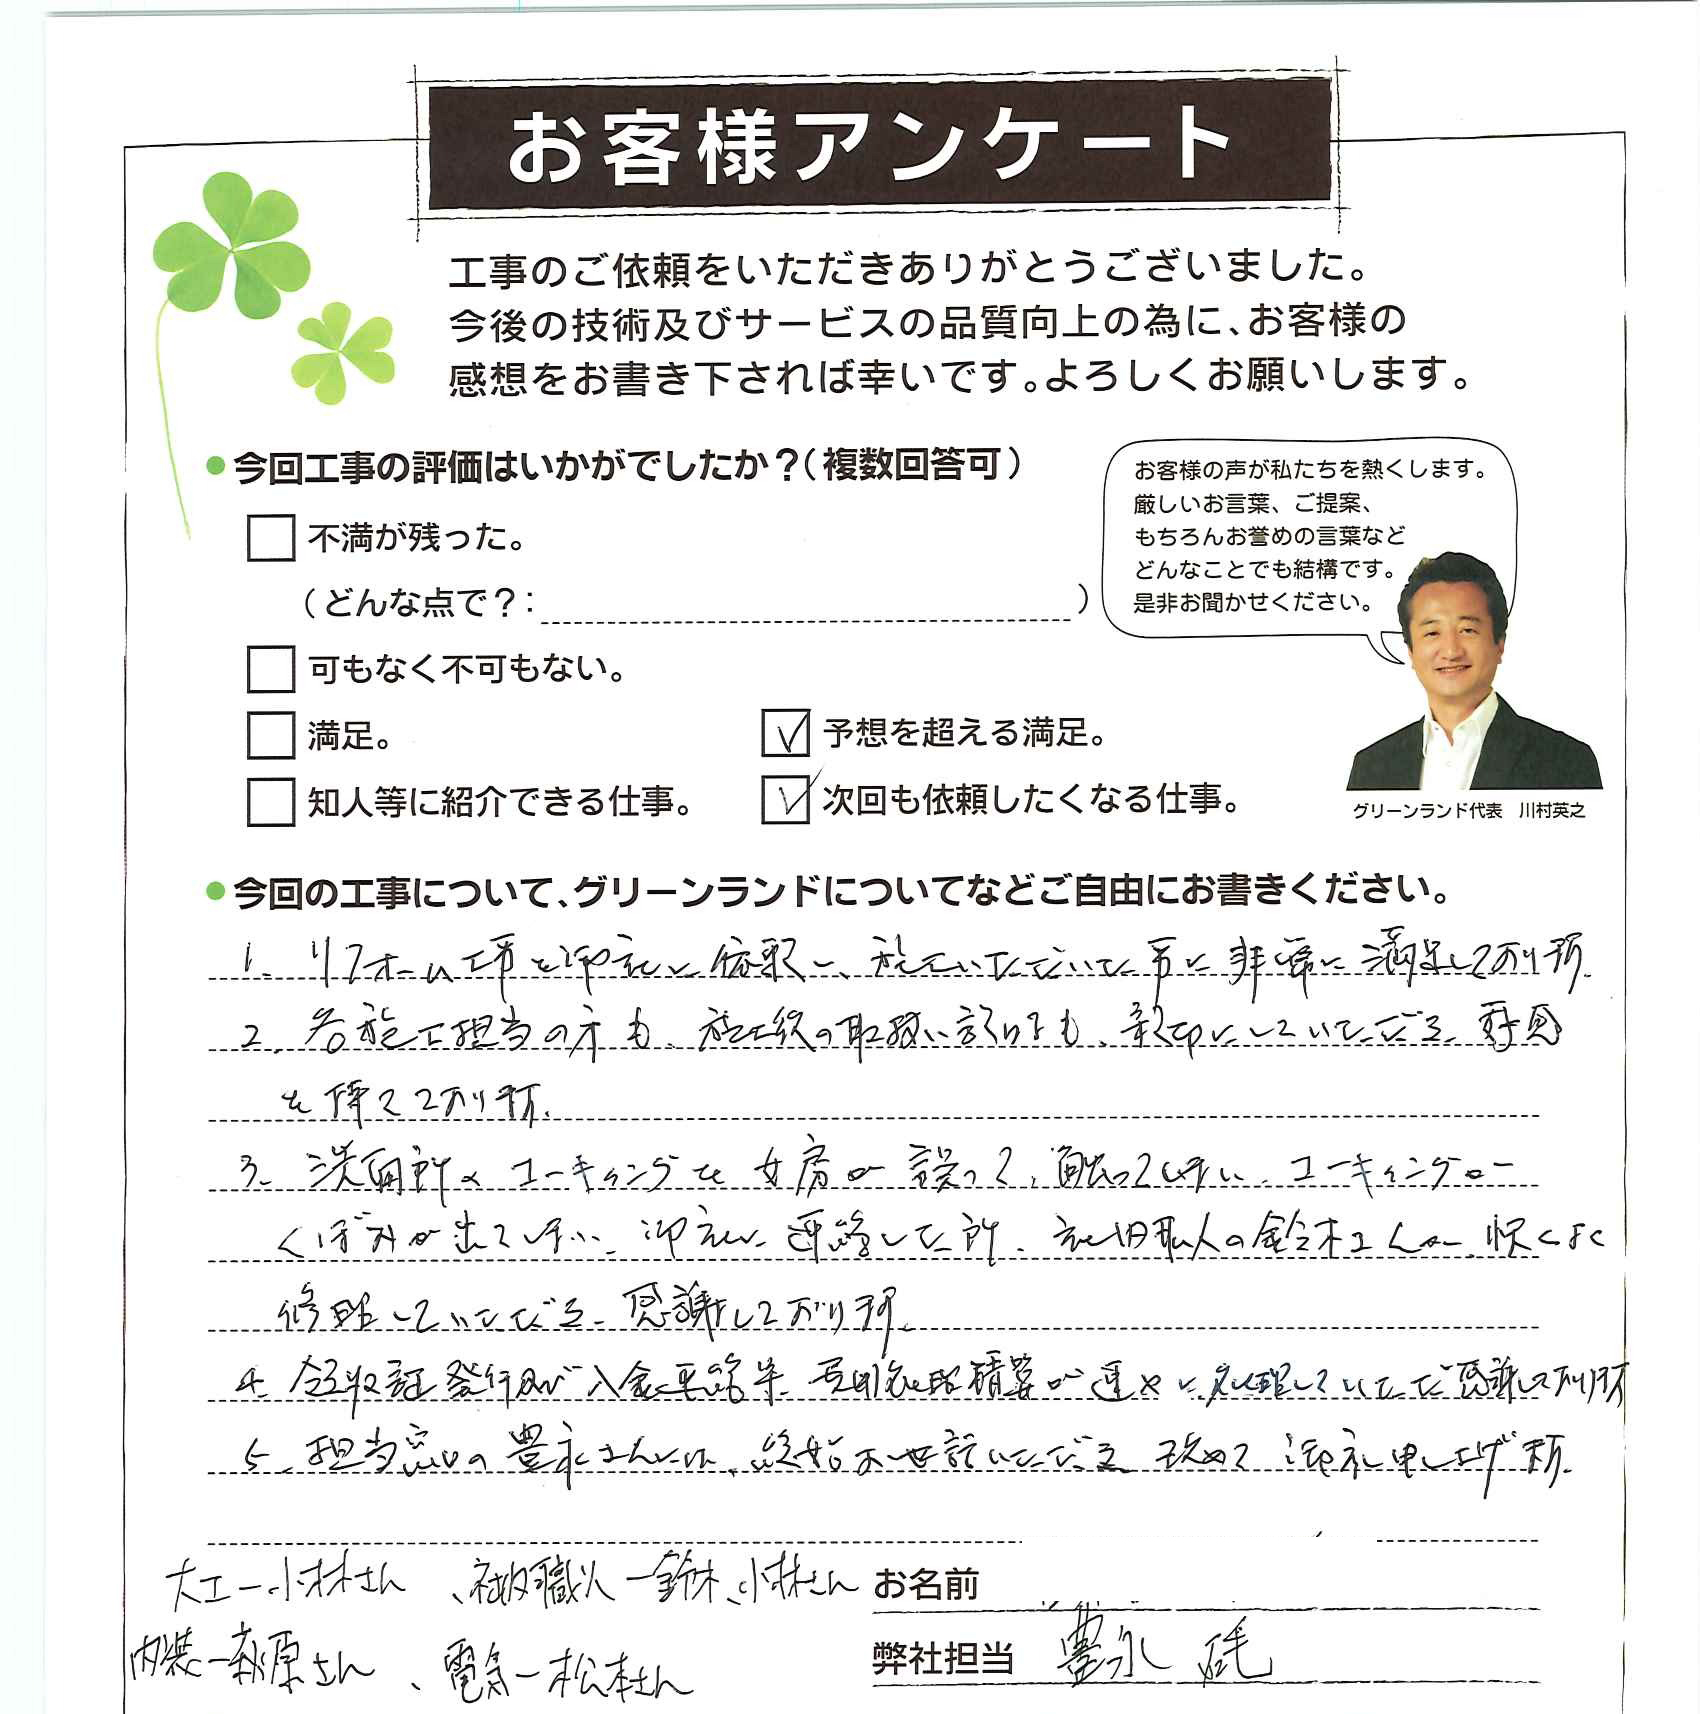 お客様アンケート
工事のご依頼をいただきありがとうございました。
今後の技術及びサービスの品質向上の為に、お客様の
感想をお書き下されば幸いです。よろしくお願いします。
●今回工事の評価はいかがでしたか？（複数回答可）
不満が残った。
（どんな点で？： ）
可もなく不可もない。
満足。
予想を超える満足。
知人等に紹介できる仕事。
次回も依頼したくなる仕事。
お客様の声が私たちを熱くします。
厳しいお言葉、ご提案、
もちろんお誉めの言葉など
どんなことでも結構です。
是非お聞かせください。
グリーンランド代表 川村英之
●今回の工事について、グリーンランドについてなどご自由にお書きください。
1. リフォーム工事を御社に依頼し、施工いただいた事に非常に満足しております。
2. 各施工担当の方も、施工後の取扱い説明も、親切にしていただき、好感
を持てております。
3. 洗面所のコーキングを女房が誤って、触ってしまい、コーキングに
くぼみが出てしまい、御社に連絡した所、社内職人の鈴木さんが、快くよく
修理していただき、感謝しております。
4. 領収証発行及び入金連絡等、費用処理精算が速やかに処理していただき感謝しております
5. 担当窓口の豊永さんには、終始お世話いただき、改めて御礼申し上げます。
大工ー小林さん、社内職人ー鈴木、小林さん
内装ー萩原さん、電気ー松本さん
お名前
弊社担当 豊永